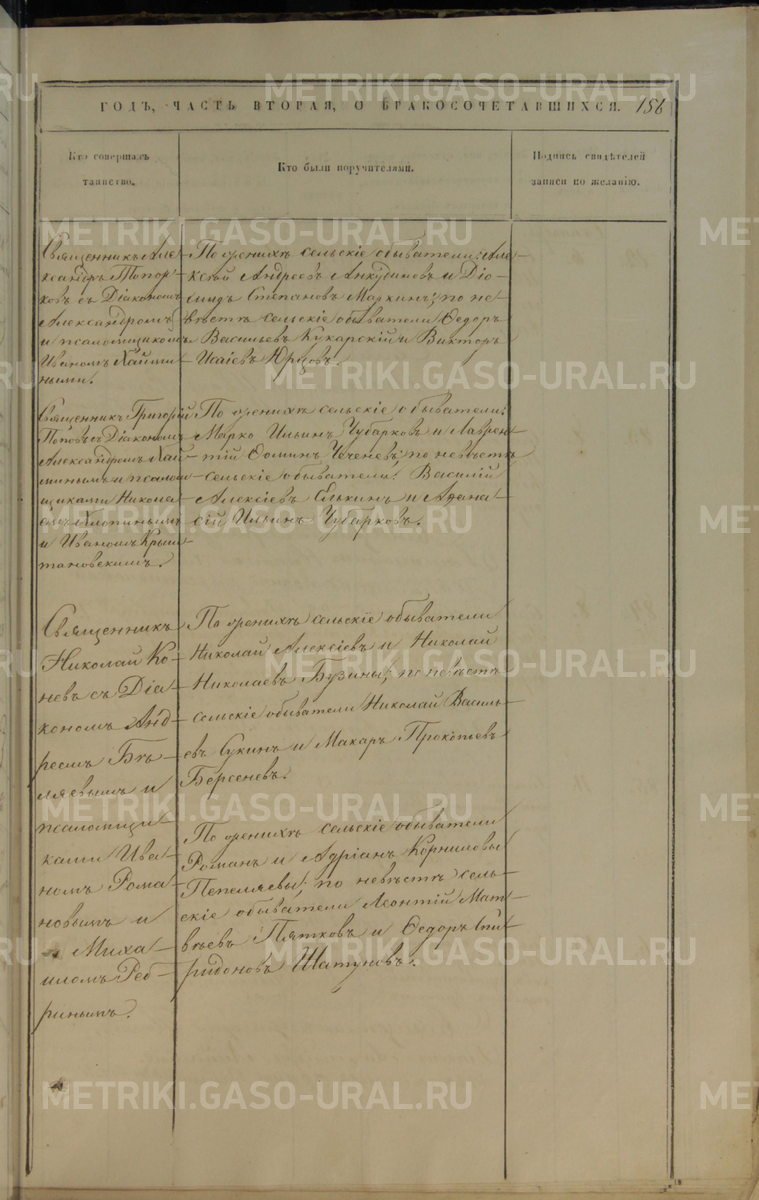 ГОДЪ, ЧАСТЬ ВТОРАЯ, О БРАКОСОЧЕТАВШИХСЯ. 156
Кто совершалъ
таинство.
Кто были поручителями.
Подпись свидѣтелей
записи по желанію.
Священникъ Але
ксандръ Топор
ковъ съ Діакономъ
Александромъ
и псаломщикомъ
Иваномъ
ными.
По женихѣ сельскіе обыватели: Але
ксѣй Андреевъ Анкудиновъ и Діо
мидъ Степановъ Мадкинъ; по не
вѣстѣ сельскіе обыватели Ѳедоръ
Васильевъ Кукарскій и Викторъ
Исаіевъ
Священникъ Григорій
Поповъ съ Діакономъ
Александромъ Хай
минымъ и псалом
щиками Никола
емъ Хлопинымъ
и Иваномъ Крыш
тановскимъ.
По женихѣ сельскіе обыватели:
Марко Ильинъ Чубарковъ и Лаврен
тій Ѳоминъ Чеченевъ; по невѣстѣ
сельскіе обыватели: Василій
Алексіевъ Елькинъ и Аѳана
сій Ильинъ Чубарковъ.
Священникъ
Николай Ко
невъ съ Діа
кономъ Анд
реемъ Бѣ
ляевымъ и
псаломщи
ками Ива
номъ Рома
новымъ и
Миха
иломъ Реб
ринымъ.
По женихѣ сельскіе обыватели
Николай Алексіевъ и Николай
Николаевъ Бузины; по невѣстѣ
сельскіе обыватели Николай Василь
евъ Сукинъ и Макаръ Прокопьевъ
Берсеневъ.
По женихѣ сельскіе обыватели
Романъ и Адріанъ Корниловы
Пепеляевы; по невѣстѣ сель
скіе обыватели Леонтій Мат
вѣевъ Пятковъ и Ѳедоръ Спи
ридоновъ Шатуновъ.
METRIKI.GASO-URAL.RU
METRIKI.GASO-URAL.RU
METRIKI.GASO-URAL.RU
METRIKI.GASO-URAL.RU
METRIKI.GASO-URAL.RU
METRIKI.GASO-URAL.RU
METRIKI.GASO-URAL.RU
METRIKI.GASO-URAL.RU